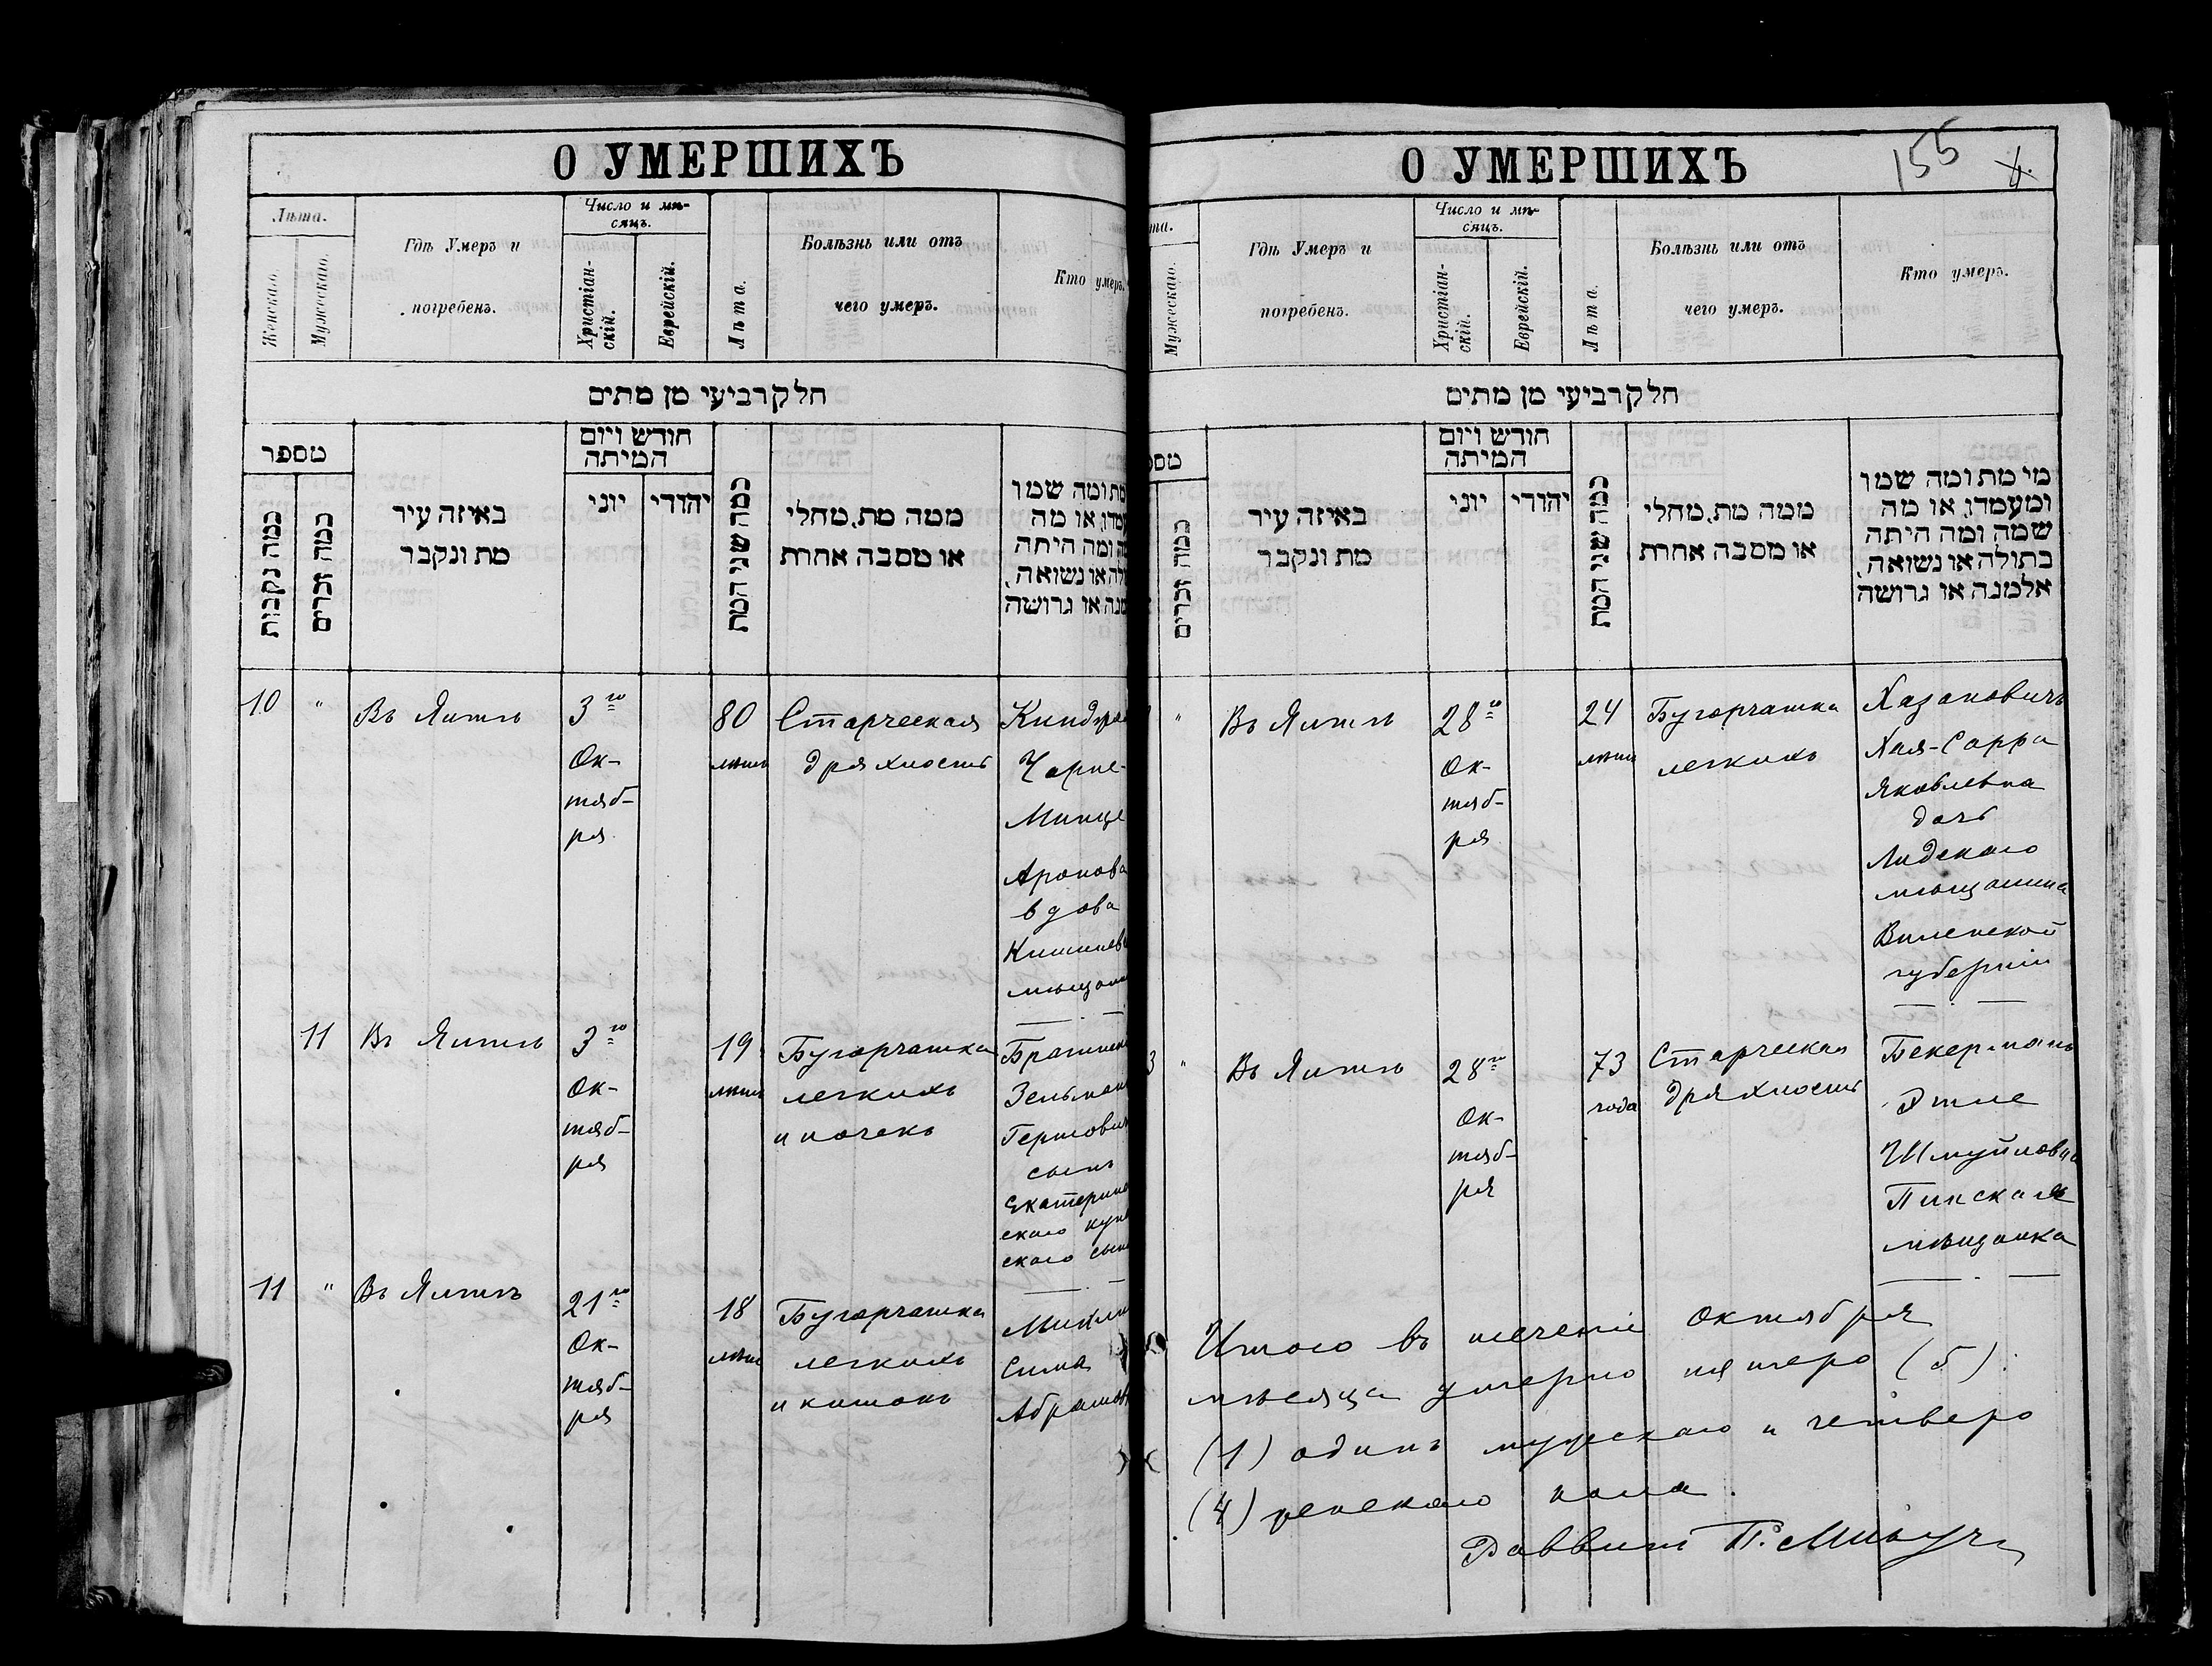 О УМЕРШИХЪ
Лѣта.
Женскаго.
Мужескаго.
Гдѣ Умеръ и
погребенъ.
Число и мѣ-
сяцъ.
Христіан-
скій.
Еврейскій.
Лѣта.
Болѣзнь или отъ
чего умеръ.
Кто умеръ.
חלק רביעי מן מתים
מספר
כמה נקבות
כמה זכרים
באיזה עיר
מת ונקבר
חודש ויום
המיתה
יוני
יהודי
כמה שני המת
ממה מת, מחלי
או מסבה אחרת
מת ומה שמו
או מה
ומה היתה
או נשואה,
או גרושה
10
"
Въ Ялтѣ
3го
Ок-
тяб-
ря
80
лѣтъ
Старческая
дряхлость
Чарне-
Минце
Аронова
вдова
11
Въ Ялтѣ
3го
Ок-
тяб-
ря
19
лѣтъ
Бугорчатка
легкихъ
и почекъ
сынъ
скаго
скаго сына
11
"
Въ Ялтѣ
21го
Ок-
тяб-
ря
18
лѣтъ
Бугорчатка
легкихъ
и кишокъ
Сима
О УМЕРШИХЪ
155
Мужескаго.
Гдѣ Умеръ и
погребенъ.
Число и мѣ-
сяцъ.
Христіан-
скій.
Еврейскій.
Лѣта.
Болѣзнь или отъ
чего умеръ.
Кто умеръ.
חלק רביעי מן מתים
כמה זכרים
באיזה עיר
מת ונקבר
חודש ויום
המיתה
יוני
יהודי
כמה שני המת
ממה מת, מחלי
או מסבה אחרת
מי מת ומה שמו
ומעמדו, או מה
שמה ומה היתה
בתולה או נשואה,
אלמנה או גרושה
"
Въ Ялтѣ
28го
Ок-
тяб-
ря
24
лѣтъ
Бугорчатка
легкихъ
Хазановичъ
Хая-Сарра
Яковлевна
дочь
Лидскаго
мѣщанина
Виленской
губерніи
3
"
Въ Ялтѣ
28го
Ок-
тяб-
ря
73
года
Старческая
дряхлость
Бекерманъ
Этле
Шмуйловна
Пинская
мѣщанка
Итого въ теченіи октября
мѣсяца умерло пятеро (5):
(1) одинъ мужскаго и четверо
(4) женскаго пола.
Раввинъ